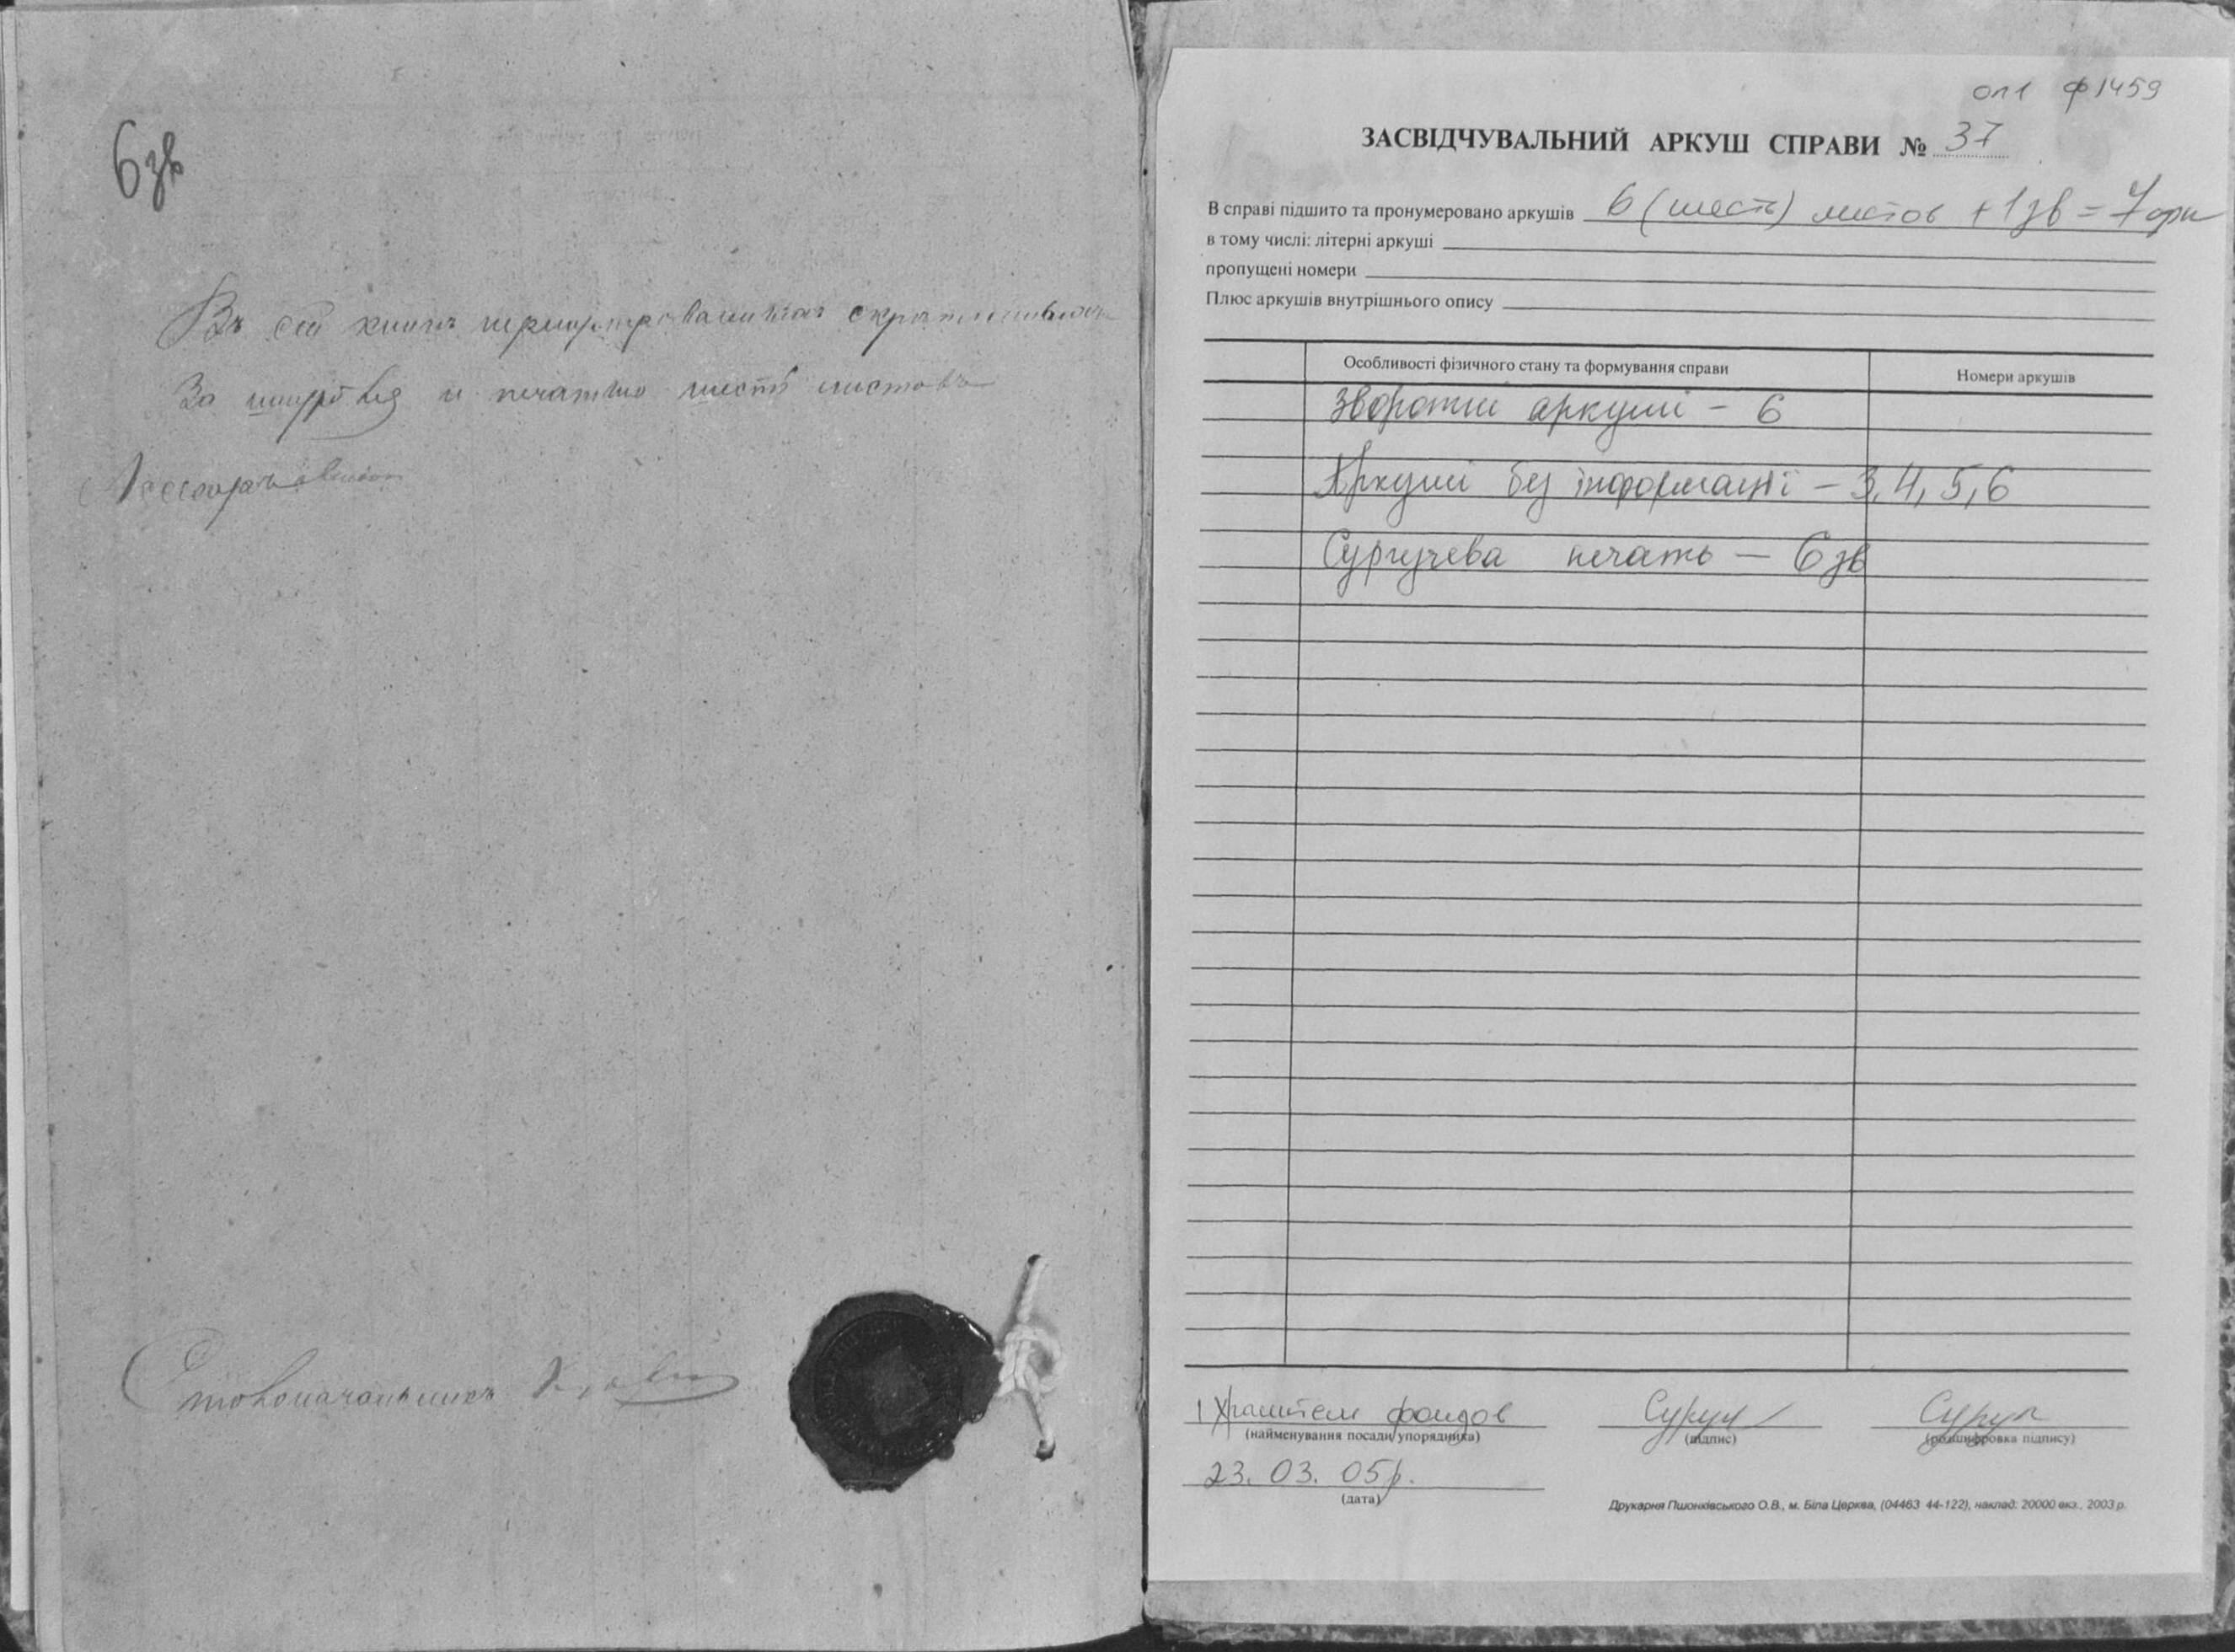 6зв
Въ сей книге
За шнуромъ и печатью шесть листовъ
Столоначальникъ
оп1 ф1459
ЗАСВІДЧУВАЛЬНИЙ АРКУШ СПРАВИ № 37
В справі підшито та пронумеровано аркушів 6 (шесть) листов +1зв = 7
в тому числі: літерні аркуші
пропущені номери
Плюс аркушів внутрішнього опису
Особливості фізичного стану та формування справи
Номери аркушів
Зворотні аркуші - 6
Аркуші без інформації - 3, 4, 5, 6
Сургучева печать - 6зв
Хранитель фондов
(найменування посади упорядника)
(підпис)
(розшифровка підпису)
23. 03. 05р.
(дата)
Друкарня Пшонківського О.В., м. Біла Церква, (04463 44-122), наклад: 20000 екз., 2003 р.